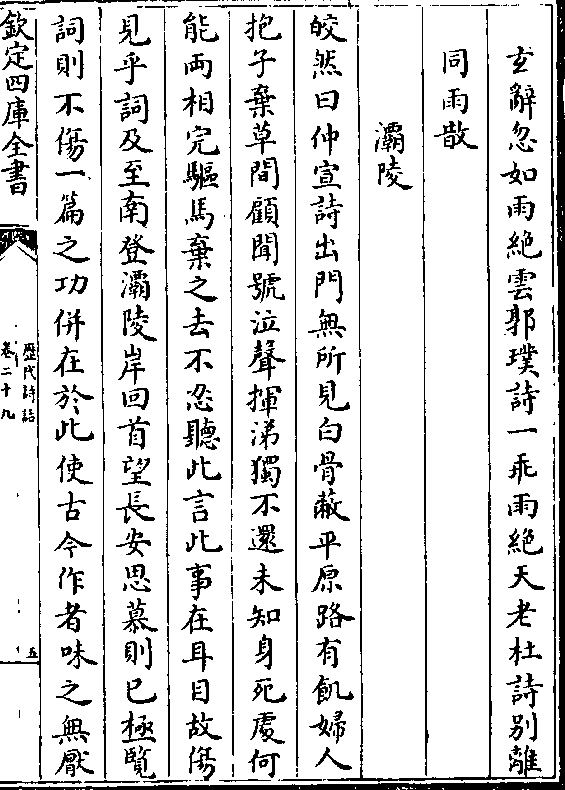 玄辭忽如雨絶雲郭璞詩一乖雨絶天老杜詩别離
同雨散
灞陵
皎然曰仲宣詩出門無所見白骨蔽平原路有飢婦人
抱子棄草間顧聞號泣聲揮涕獨不還未知身死處何
能兩相完驅馬棄之去不忍聽此言此事在耳目故傷
見乎詞及至南登灞陵岸回首望長安思慕則已極覽
詞則不傷一篇之功併在於此使古今作者味之無厭
欽定四庫全書
歴代詩話
卷二十九
五